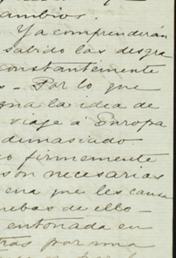 ambios.
Ya comprenderán
salido las desgra
constantemente
s - Por lo que
la idea de
viaje á Europa
demasiado
o firmemente
son necesarias
ena que les cause
uebas de ello -
entonada en
tras por una